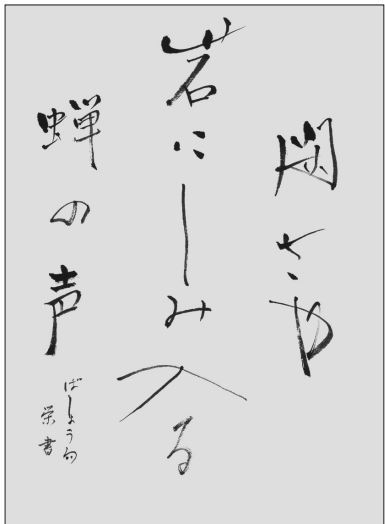 閑さや
岩にしみ入る
蝉の声
ばしょう句
栄書